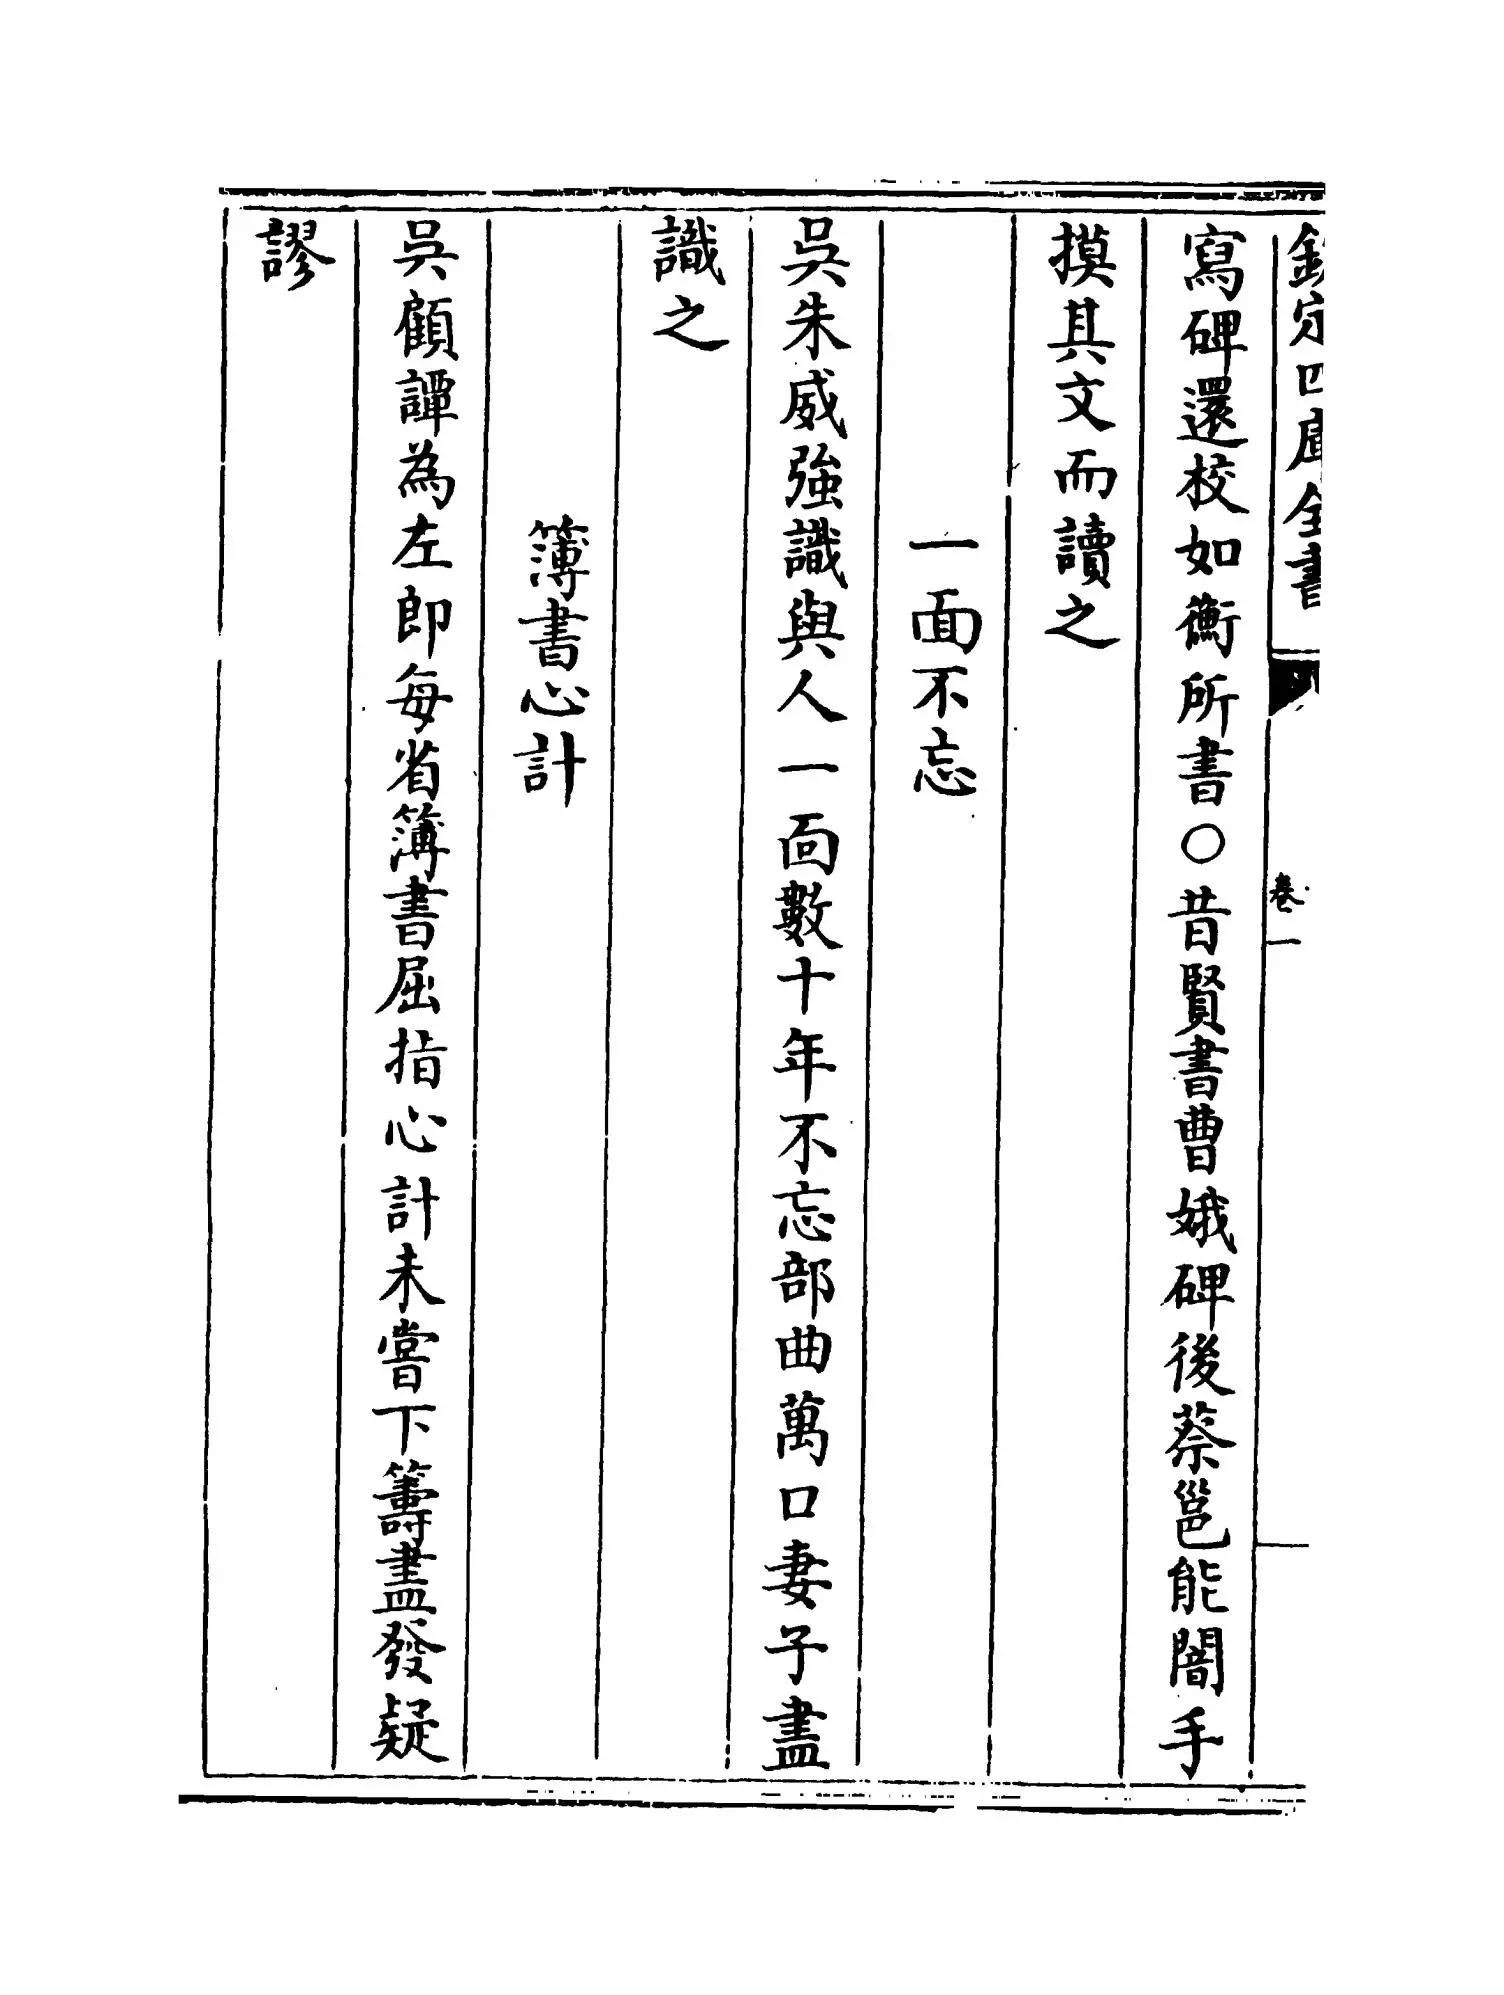 欽定四庫全書
卷一
寫碑還校如衡所書〇昔賢書曹娥碑後蔡邕能闇手
摸其文而讀之
一面不忘
吳朱威強識與人一面數十年不忘部曲萬口妻子盡
識之
簿書心計
吳顧譚為左郎每省簿書屈指心計未嘗下籌盡發疑
謬